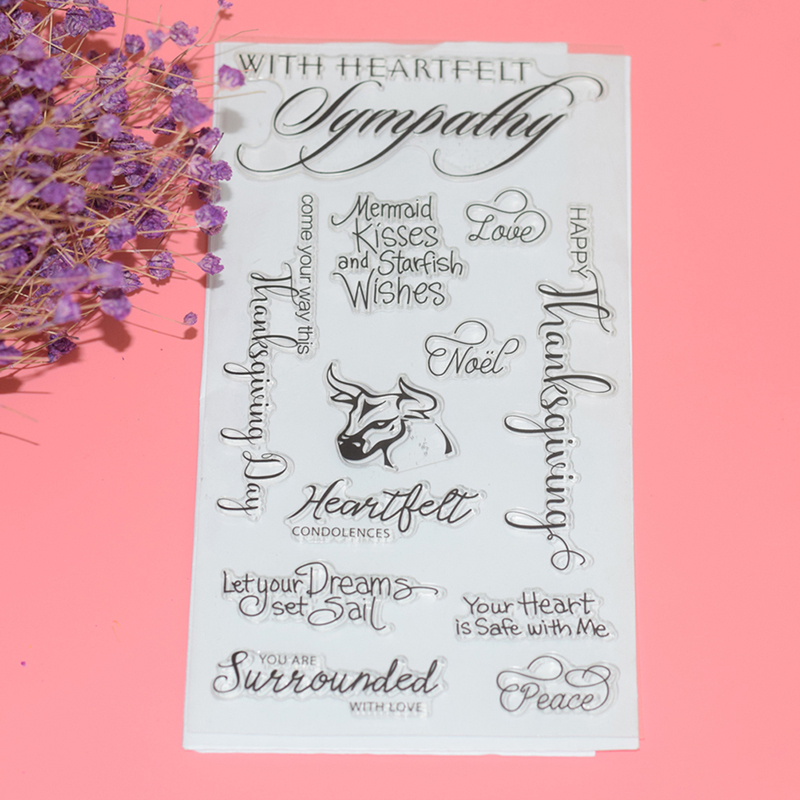 WITH HEARTFELT
Sympathy
come your way this
Thanksgiving Day
Mermaid
Kisses
and Starfish
Wishes
Love
HAPPY
Thanksgiving
Noël
Heartfelt
CONDOLENCES
Let your Dreams
set Sail
Your Heart
is Safe with Me
YOU ARE
Surrounded
WITH LOVE
Peace